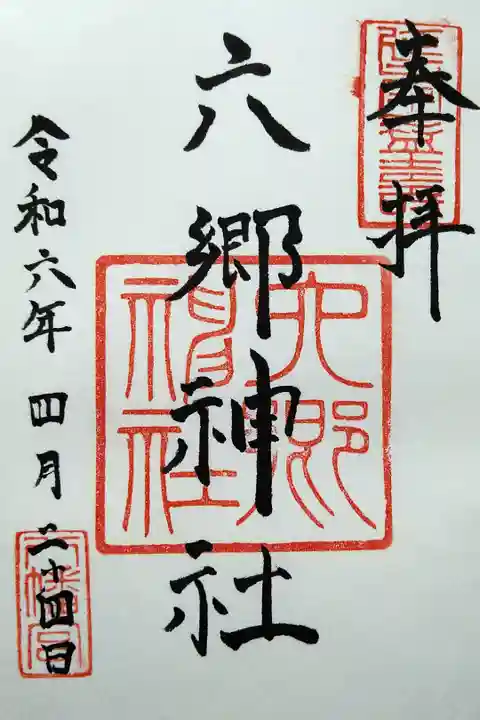 奉拝
六郷神社
令和六年四月二十四日
六郷神社
八幡宮